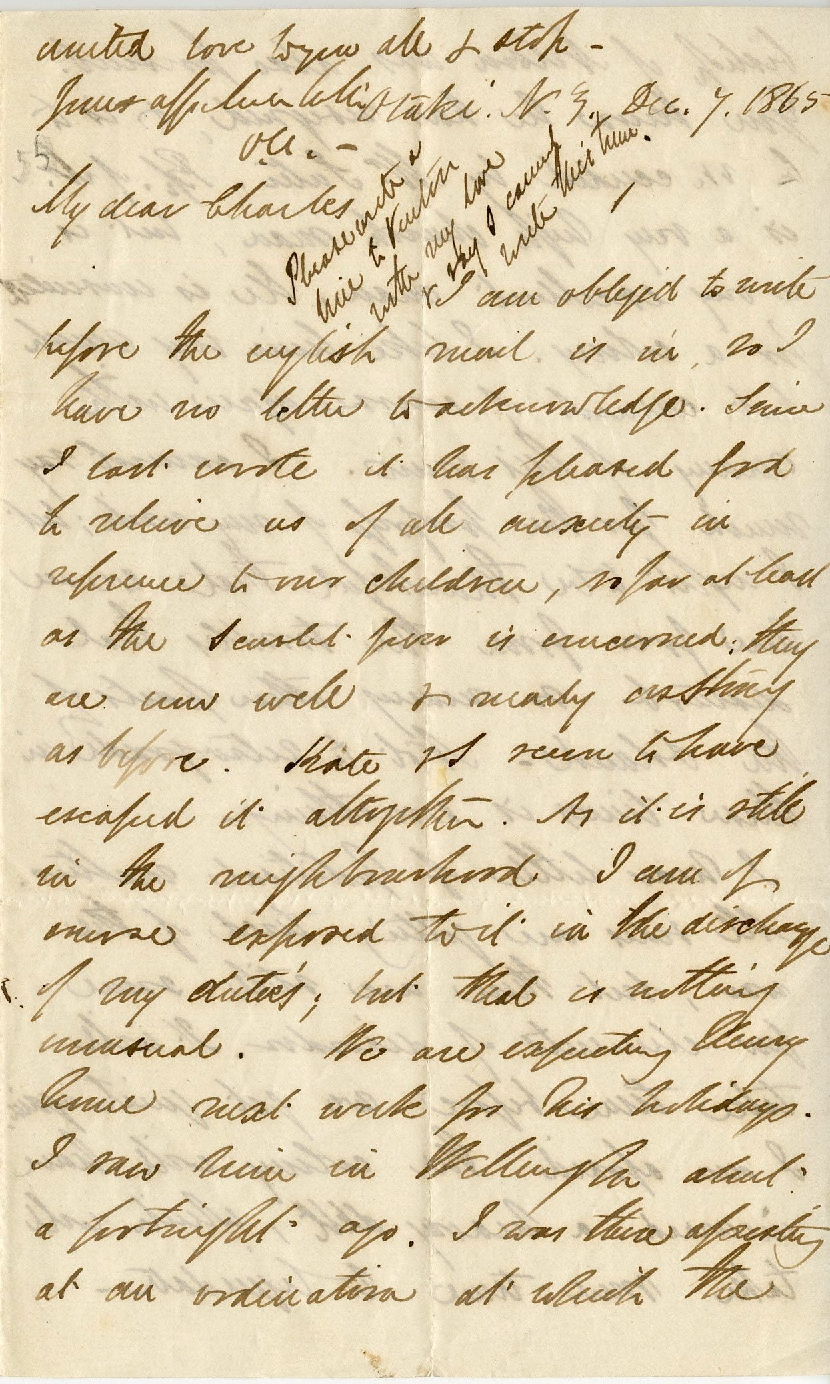 united love to you all & stop -
Your affec
Otaki. N.Z. Dec. 7. 1865
My dear Charles
Please write a
line to Ventin
with my love
& say I cannot
write this time.
I am obliged to write
before the english mail is in, so I
have no letter to acknowledge. Since
I last wrote it has pleased God
to relieve us of all anxiety in
reference to our children, so far at least
as the Scarlet fever is concerned; they
are now well & nearly as strong
as before. Kate & I seem to have
escaped it altogether. As it is still
in the neighbourhood I am of
course exposed to it in the discharge
of my duties; but that is nothing
unusual. We are expecting Henry
home next week for his holidays.
I saw him in Wellington about
a fortnight ago. I was there assisting
at an ordination at which the